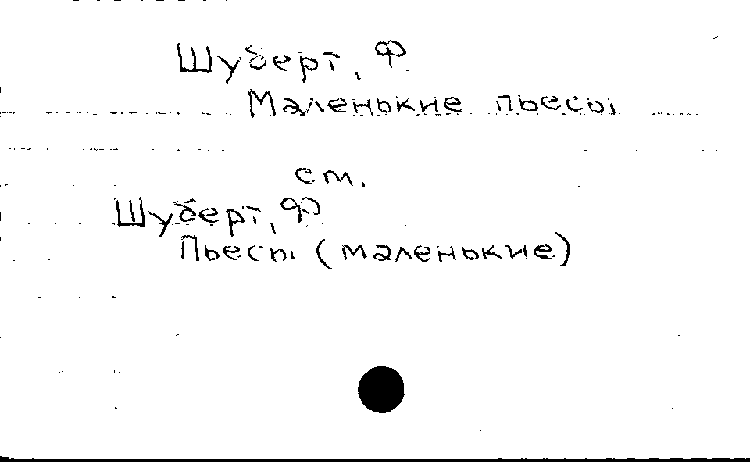 Шуберт, Ф.
Маленькие пьесы
см.
Шуберт, Ф
Пьесы (маленькие)